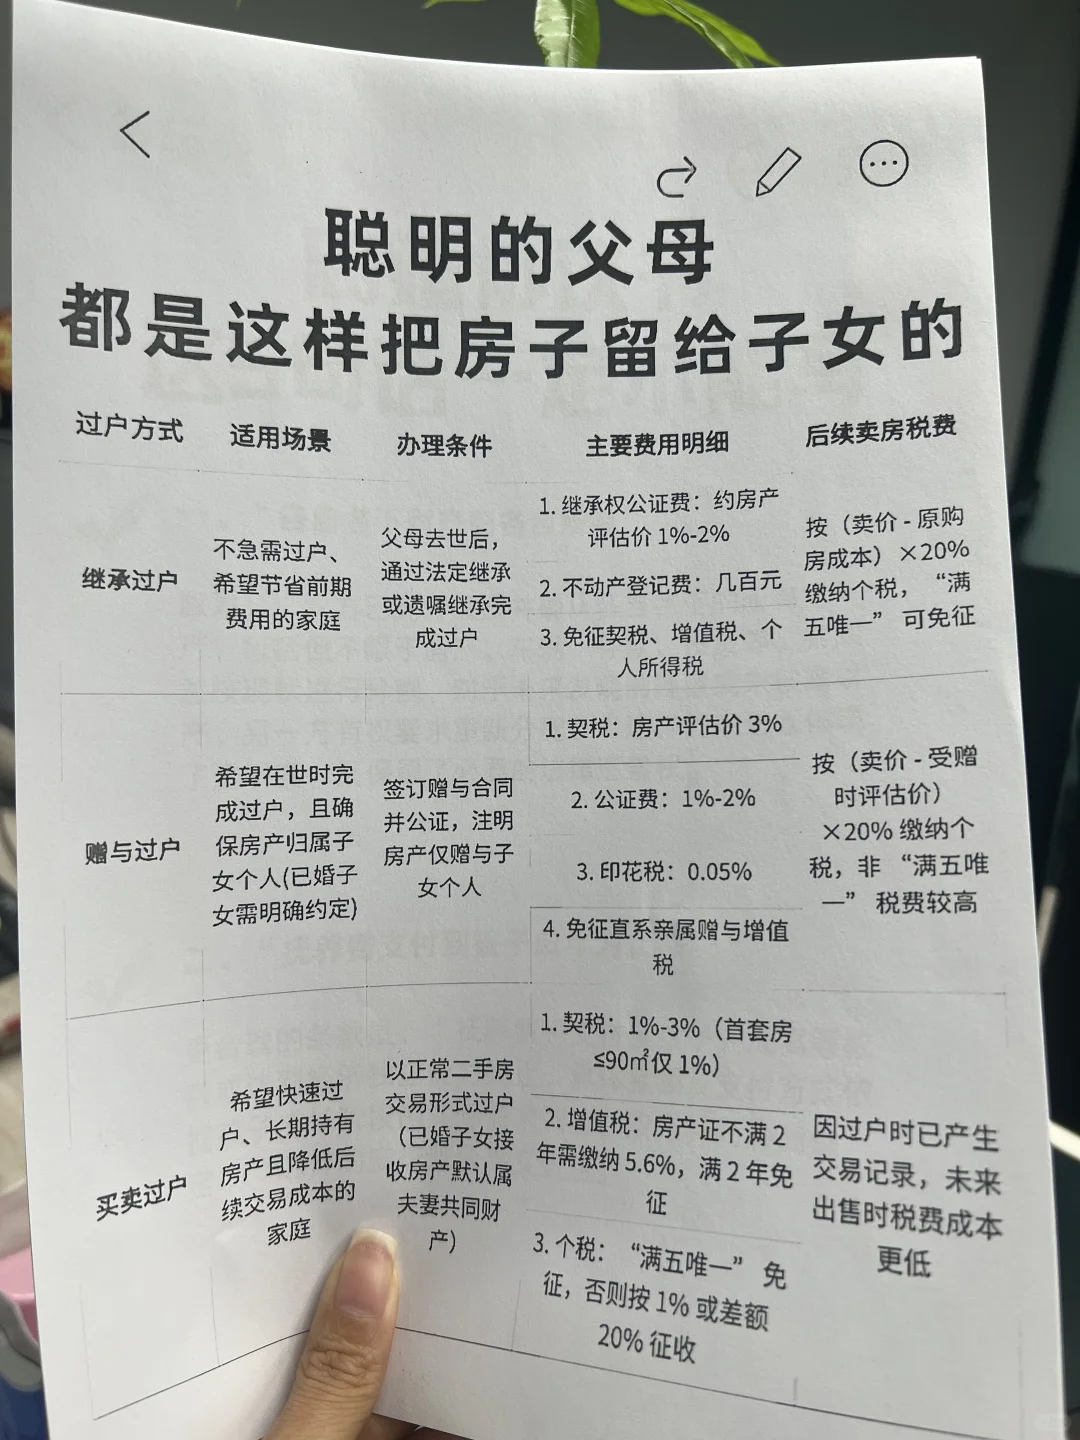 聪明的父母
都是这样把房子留给子女的
过户方式
适用场景
办理条件
主要费用明细
后续卖房税费
继承过户
不急需过户、
希望节省前期
费用的家庭
父母去世后，
通过法定继承
或遗嘱继承完
成过户
1. 继承权公证费：约房产
评估价 1%-2%
2. 不动产登记费：几百元
3. 免征契税、增值税、个
人所得税
按（卖价 - 原购
房成本）×20%
缴纳个税，“满
五唯一” 可免征
赠与过户
希望在世时完
成过户，且确
保房产归属子
女个人(已婚子
女需明确约定)
签订赠与合同
并公证，注明
房产仅赠与子
女个人
1. 契税：房产评估价 3%
2. 公证费：1%-2%
3. 印花税：0.05%
4. 免征直系亲属赠与增值
税
按（卖价 - 受赠
时评估价）
×20% 缴纳个
税，非 “满五唯
一” 税费较高
买卖过户
希望快速过
户、长期持有
房产且降低后
续交易成本的
家庭
以正常二手房
交易形式过户
（已婚子女接
收房产默认属
夫妻共同财
产）
1. 契税：1%-3%（首套房
≤90㎡仅 1%）
2. 增值税：房产证不满 2
年需缴纳 5.6%，满 2 年免
征
3. 个税： “满五唯一” 免
征，否则按 1% 或差额
20% 征收
因过户时已产生
交易记录，未来
出售时税费成本
更低